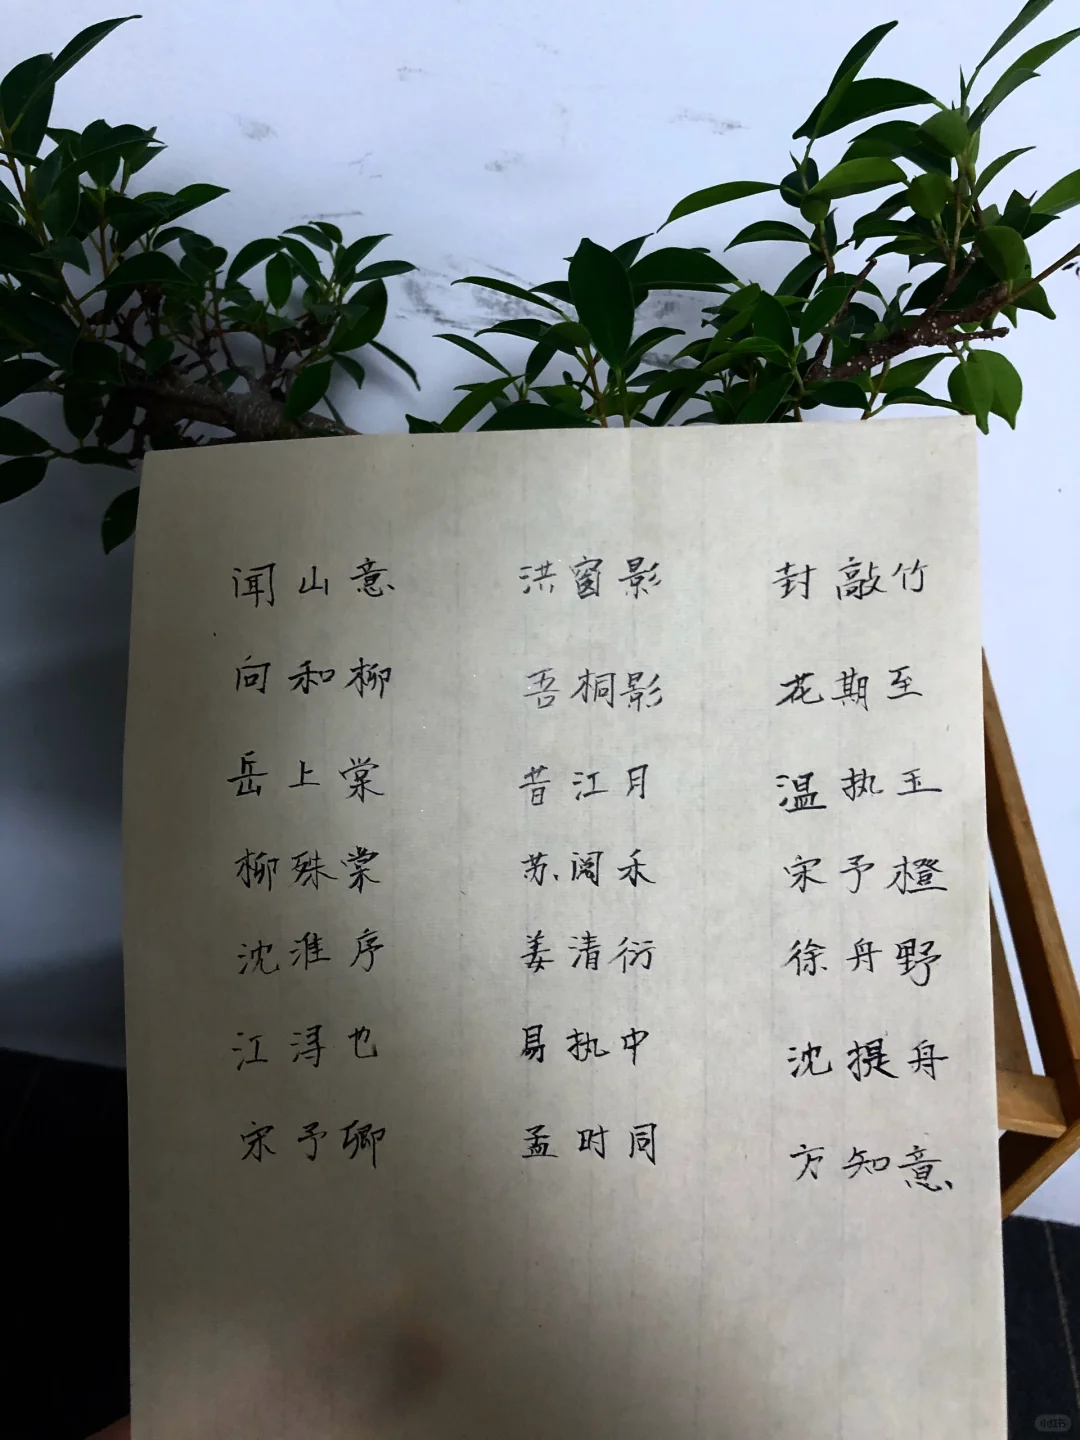 闻山意 洪窗影 封敲竹
向和柳 吾桐影 花期至
岳上棠 昔江月 温执玉
柳殊棠 苏阁禾 宋予橙
沈淮序 姜清衍 徐舟野
江浔也 易执中 沈提舟
宋予卿 孟时同 方知意
小红书